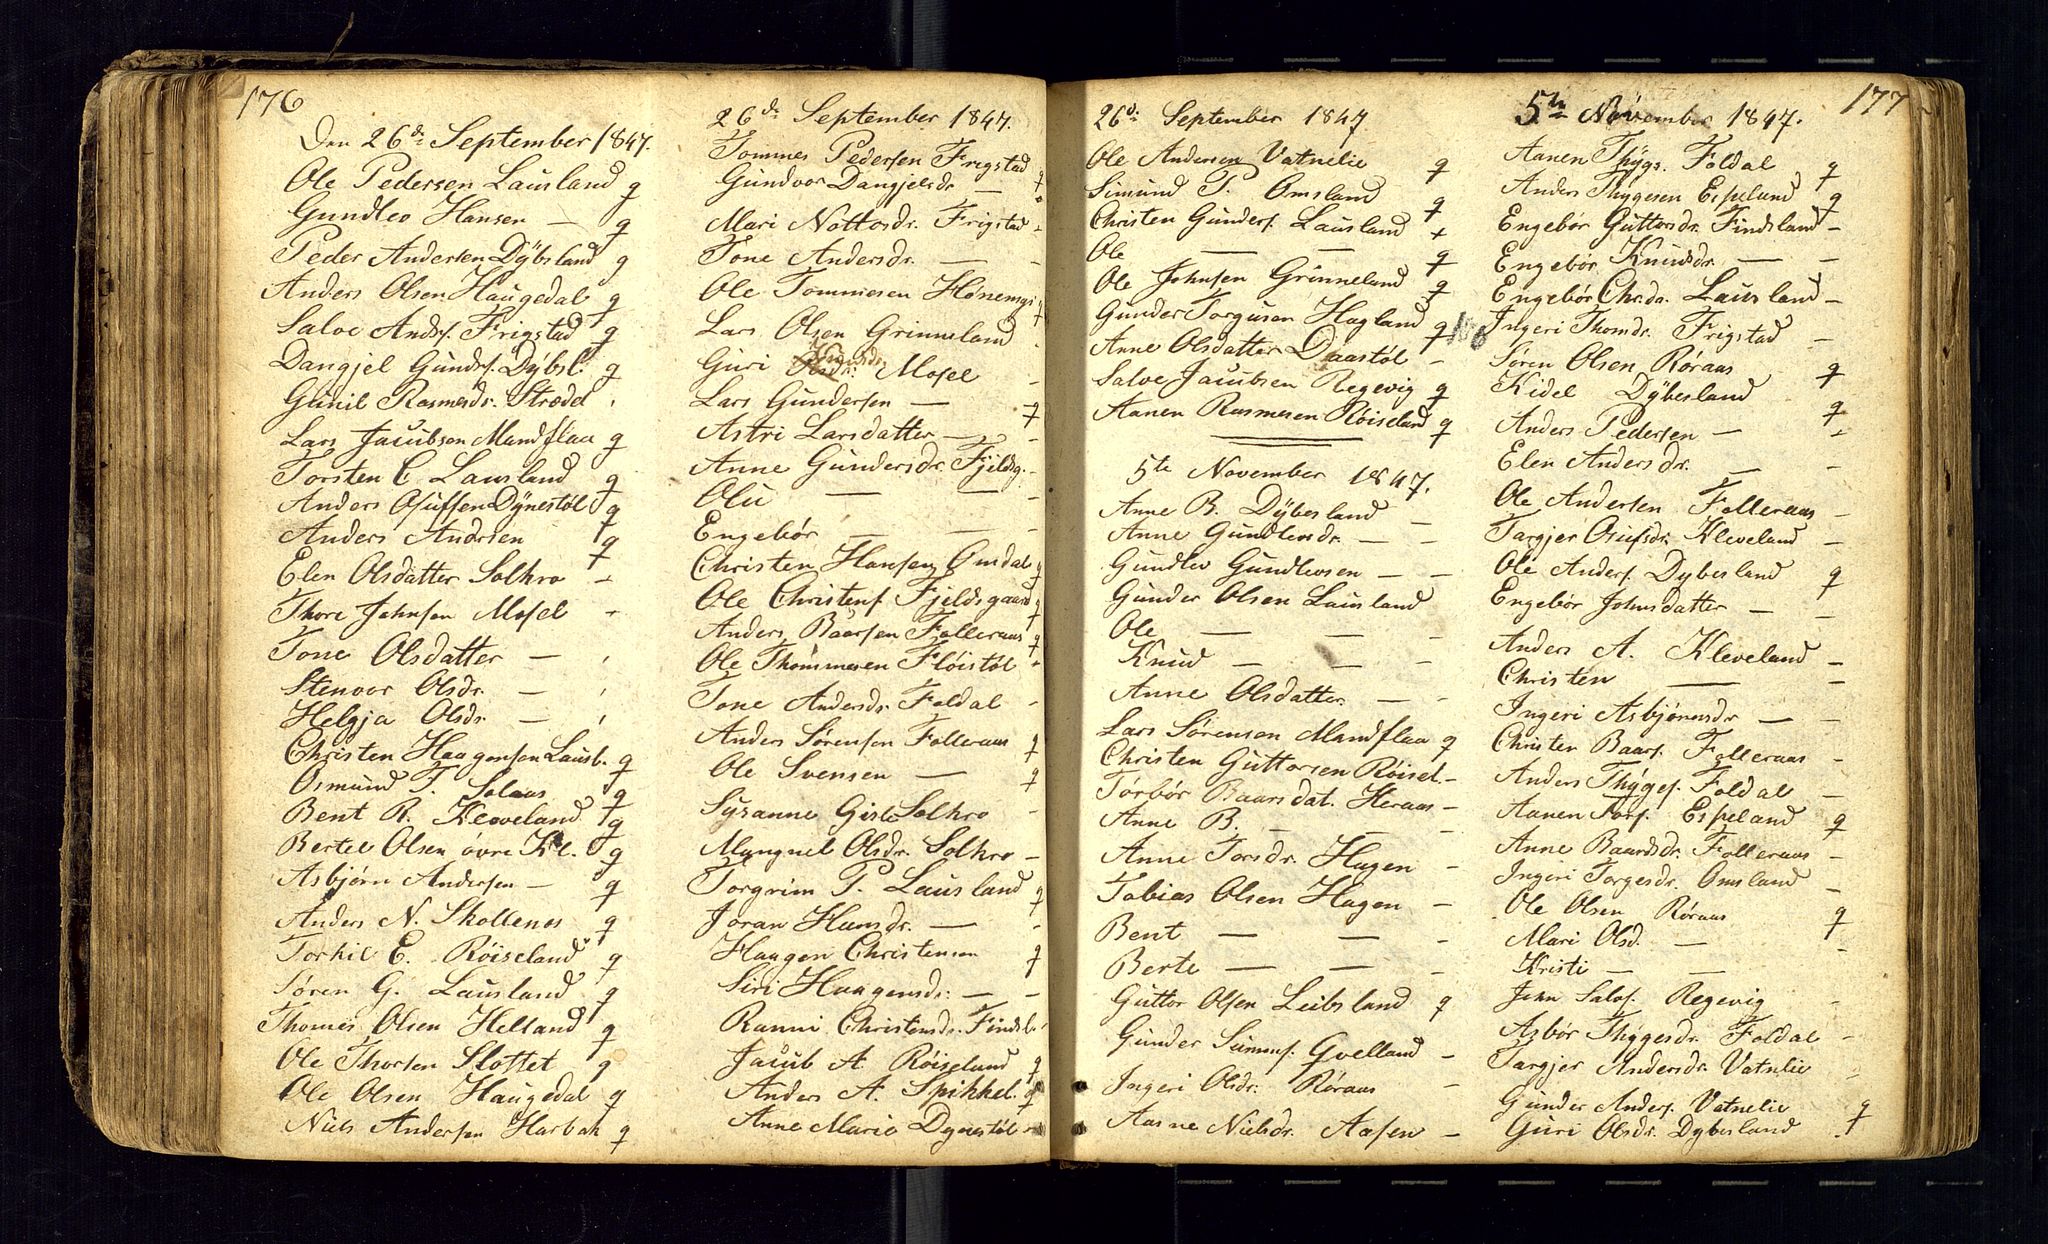 176
Den 26de September 1847.
Ole Pedersen Lausland q
Gundleo Hansen — q
Peder Andersen Dÿbsland q
Anders Olsen Haugedal q
Salve Andsf. Frigstad q
Dangjel Gundsf. Dÿbsl. q
Gunil Rasmesdr. Strædet
Lars Jacobsen Mandflaa q
Torsten C. Lausland q
Anders Osuffsen Dÿnestøl q
Anders Andrsen q
Elen Olsdatter Solhro -
Thore Johnsen Mosel -
Tone Olsdatter —
Stenvor Olsdr. —
Helgja Olsdr. —
Christen Haagensen Lausl. q
Osmund T. Solaas q
Bent R. Kleveland q
Bertel Olsen øvre Kl. q
Asbjørn Andersen — q
Anders N. Skollenes q
Torkil E. Røiseland q
Søren G. Lausland q
Thomes Olsen Helland q
Ole Thorsen Slottet q
Ole Olsen Haugedal q
Niels Andersen Harbak q
26de September 1847.
Tommes Pedersen Frigstad q
Gundvor Dangjelsdr —
Mari Nottosdr. Frigstad -
Tone Andersdr. — —
Ole Tommesen Hønemyr q
Lars Olsen Grinneland
Guri Mosel -
Lars Gundersen — q
Astri Larsdatter — -
Anne Gundersdr. Fjeldsg. -
Olu — — -
Engebør — -
Christen Hansen Omdal q
Ole Christens. Fjeldsgaard q
Anders Baarsen Folleraas q
Ole Thommesen Fløistøl -
Tone Andersdr. Foldal -
Anders Sørensen Folleraas q
Ole Svensen — q
Susanne Gisle Solhro -
Mangnel Olsdr. Solhro -
Torgrim P. Lausland q
Joran Hansdr. — -
Haagen Christensen q
Siri Haagensdr. — -
Ranni Christensdr. Findsl.
Jacub A. Røiseland q
Anders A. Spikkel. q
Anne Marie Dynestøl -
26de September 1847
Ole Andersen Vatnelie q
Simund P. Omsland q
Christen Gunders. Lausland +
Ole — — q
Ole Johnsen Grinneland q
Gunder Torgusen Hagland q
Anne Olsdatter Daastøl -
Salve Jacubsen Regevig q
Aanen Rasmesen Røiseland q
5te November 1847.
Anne B. Dÿbesland —
Anne Gundlevsdr. — -
Gundlev Gundlevsen — -
Gunder Olsen Lausland
Ole — — -
Knud — — -
Anne Olsdatter — -
Lars Sørensen Mandflaa q
Christen Guttorsen Røisel. -
Torbør Baarsdat. Heraas -
Anne B. — — -
Anne Torsdr. Hagen -
Tobias Olsen Hagen -
Bent — — -
Berte — — -
Guttor Olsen Leibsland q
Gunder Gvelland -
Ingeri Olsdr. Røraas -
Aasne Nielsdr. Aasen -
177
5te November 1847.
Aanen Thÿgs. Foldal q
Anders Thÿgesen Espeland q
Engebør Guttorsdr. Findsland -
Engebør Knudsdr. — -
Engebør Chr.dr. Lausland -
Ingeri Thomdr. Frigstad -
Søren Olsen Røraas q
Kidel Dÿbesland q
Anders Pedersen — -
Elen Andersdr. — -
Ole Andersen Folleraas -
Targjer Osufsdr. Kleveland -
Ole Anders. Dybesland q
Engebør Johnsdatter — -
Anders A. Kleveland -
Christen — -
Ingeri Asbjønsdr — -
Christen Baars. Folleraas -
Anders Thÿges. Foldal -
Aanen Tors. Espeland q
Anne Baardsdr. Folleraas -
Ingeri Torgesdr. Omsland -
Ole Olsen Røraas q
Mari Olsd. — -
Kristi — —
John Salvs. Regevig -
Asbør Thÿgesdr. Foldal -
Targjer Andersdr. Vatnelie -
Gunder Anders. Vatnelie q
Guri Olsdr. Dybesland -